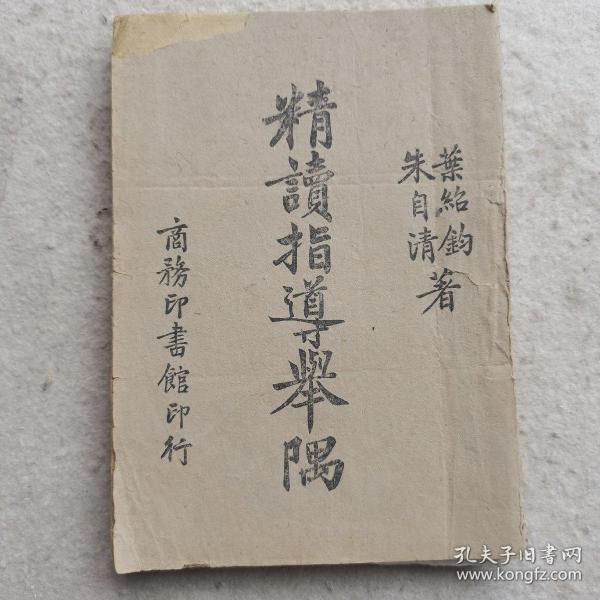 葉紹鈞
朱自清 著
精讀指導舉隅
商務印書館印行
孔夫子旧书网
www.kongfz.com